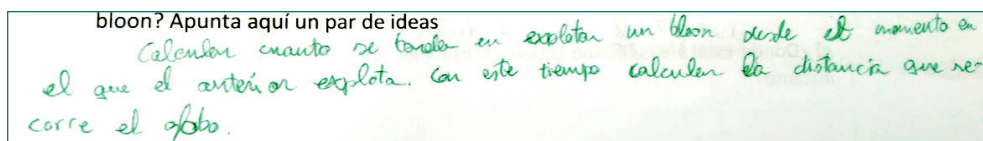 bloon? Apunta aquí un par de ideas
Calcular cuanto se tarda en explotar un bloon desde el momento en
el que el anterior explota. Con este tiempo calcular la distancia que re-
corre el globo.